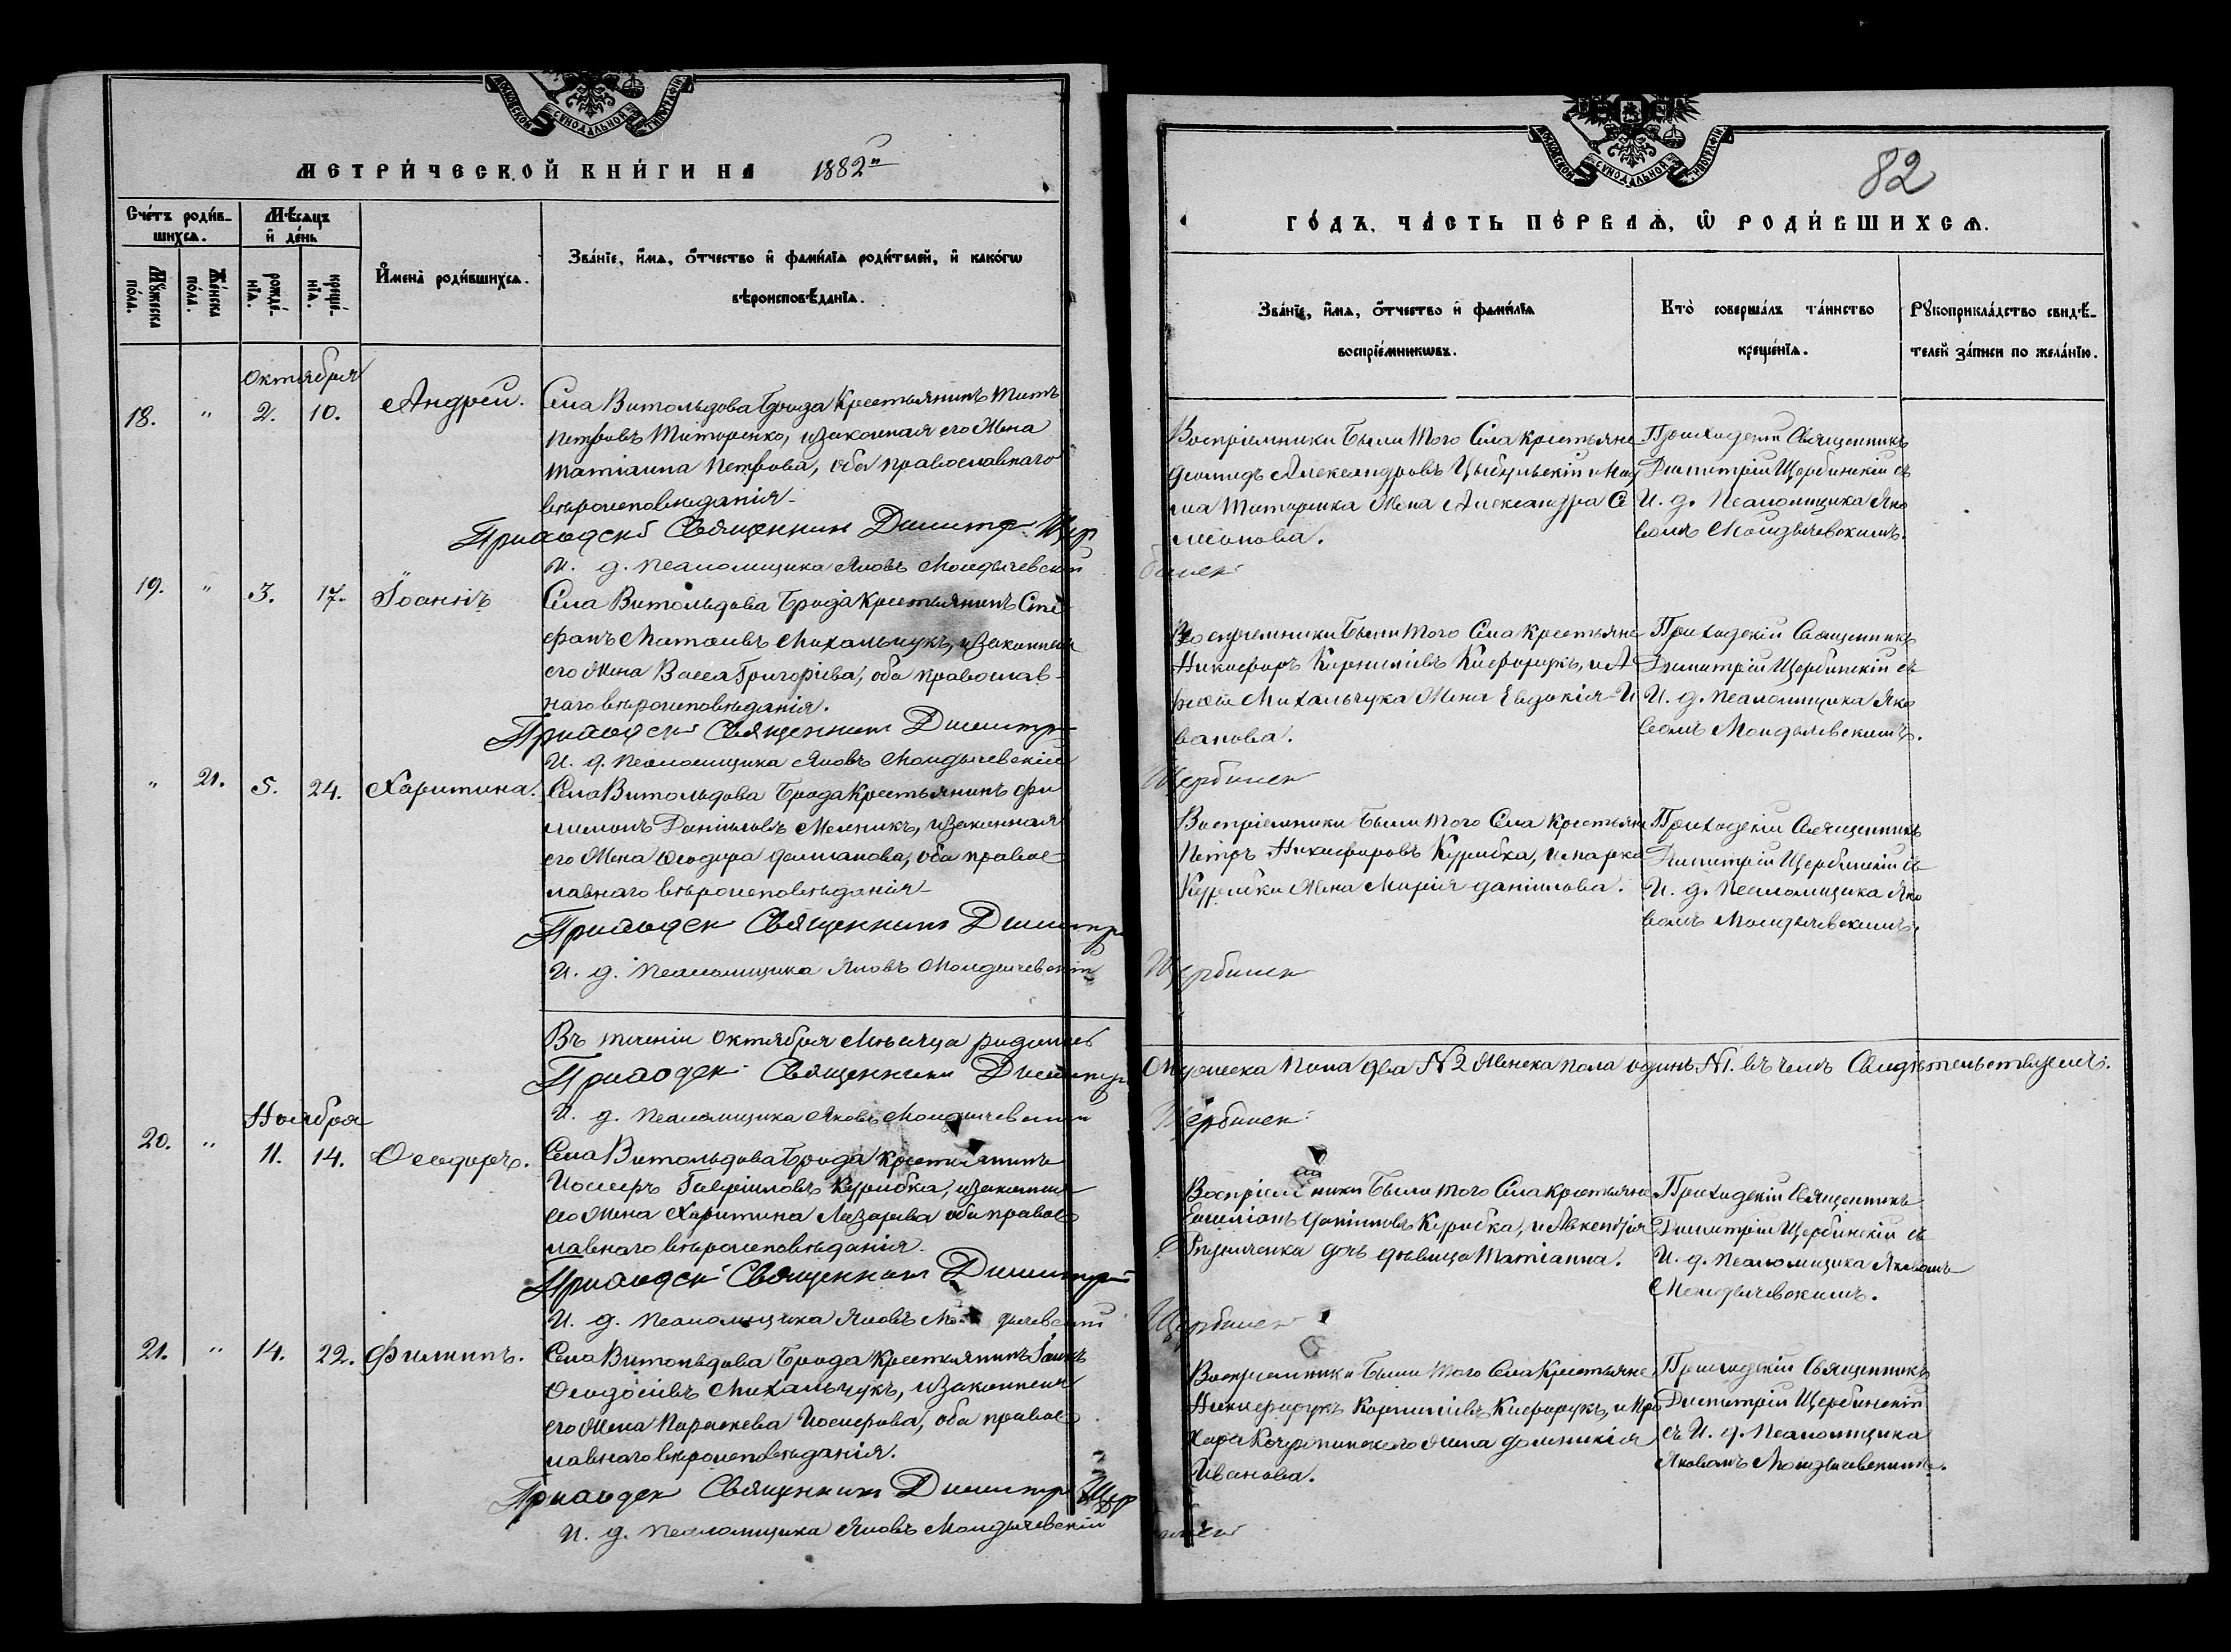 МОСКОВСКОЙ СѶНОДАЛЬНОЙ ТИПОГРАФІИ
МЕТРИ́ЧЕСКОЙ КНИ́ГИ НА 1882й
Сче́тъ роди́в-
шихсѧ.
Мѣ́сѧцъ
и҆ де́нь
Мꙋ́жеска
по́ла.
Же́нска
по́ла.
рожде́-
нїѧ.
креще́-
нїѧ.
И҆мена̀ роди́вшихсѧ.
Зва́нїе, и҆́мѧ, ѻ҆́тчество и҆ фами́лїѧ роди́телей, и҆ како́гѡ
вѣроисповѣ́данїѧ.
Октября
18. " 2. 10. Андрей. Села Витольдова Брода Крестьянинъ Титъ
Петровъ Титаренко, изаконная его Жена
Татіанна Петрова, оба православнаго
вѣроисповѣданія
Приходскі Священник Димитр. Щер
И. д. Псаломщика Яковъ Молдычевскій
19. " 3. 17. Іоаннъ Села Витольдова Брода Крестьянинъ Сте
фанъ Матѳіевъ Михальчукъ, изаконная
его Жена Васса Григоріева, оба православ-
наго вѣроисповѣданія.
Приходскі Священник Димитр
И. д. Псаломщика Яковъ Молдычевскій
" 21. 5. 24. Харитина. Села Витольдова Брода Крестьянинъ Фи
лимонъ Даніиловъ Мельникъ, изаконная
его Жена Ѳеодора, оба правос
лавнаго вѣроисповѣданія
Приходск Священник Димитр
И. д. Псаломщика Яковъ Молдычевскій
Въ теченіи Октября Мѣсяца родилось
Приходск Священник Димитр
И. д. Псаломщика Яковъ Молдычевскій
Ноября
20. " 11. 14. Ѳеодоръ. Села Витольдова Брода Крестьянинъ
Іосифъ Гавріиловъ Курибка, изаконная
его Жена Харитина Лазарева оба правос
лавнаго вѣроисповѣданія.
Приходскі Священник Димитрі
И. д. Псаломщика Яковъ Мо дычевскій
21. " 14. 22. Филипъ. Села Витольдова Брода Крестьянинъ
Ѳеодосіевъ Михальчукъ, изаконная
его Жена Параскева Іосифова, оба правос
лавнаго вѣроисповѣданія.
Приходск Священник Димитр Щер
И. д. Псаломщика Яковъ Молдычевскій
МОСКОВСКОЙ СѶНОДАЛЬНОЙ ТИПОГРАФІИ
82
ГО́ДЪ, ЧА́СТЬ ПЕ́РВАѦ, Ѽ РОДИ́ВШИХСѦ.
Зва́нїе, и҆́мѧ, ѻ҆́тчество и҆ фами́лїѧ
воспрїе́мникѡвъ.
Кто̀ соверша́лъ та́инство
креще́нїѧ.
Рꙋкоприкла́дство свидѣ́-
телей за́писи по жела́нїю.
Воспріемники были того Села крестьяне
Леонидъ Александровъ Цыбульскій и
ма Титаренка Жена Александра Си
меонова.
Приходскій Священникъ
Димитрій Щербинскій съ
И. д. Псаломщика Яко
вомъ Молдычевскимъ.
бинск
Воспріемники были того Села Крестьяне
Никифоръ Корниліевъ Кифорукъ, и А
Михальчука Жена Евдокія И
ванова.
Приходскій Священникъ
Димитрій Щербинскій съ
И. д. Псаломщика Яко
вомъ Молдычевскимъ.
Щербинск
Воспріемники были того Села Крестьяне
Петръ Никифоровъ Курибка, и Марка
Курибки Жена Марія Даніилова.
Приходскій Священникъ
Димитрій Щербинскій съ
И. д. Псаломщика Яко
вомъ Молдычевскимъ.
Щербинск
Мужеска пола два №2 Женска пола одинъ №1. въ чемъ Свидѣтельствуемъ.
Щербинск
Воспріемники были того Села Крестьяне
Емиліанъ Даніиловъ Курибка, и Авкентія
дочь дѣвица Татіанна.
Приходскій Священникъ
Димитрій Щербинскій съ
И. д. Псаломщика Яковомъ
Молдычевскимъ.
Щербинск
Воспріемники были того Села Крестьяне
Никифорукъ Корниліевъ Кифорукъ, и Про
хора жена Домникія
Иванова.
Приходскій Священникъ
Димитрій Щербинскій
съ И. д. Псаломщика
Яковомъ Молдычевскимъ.
бинск